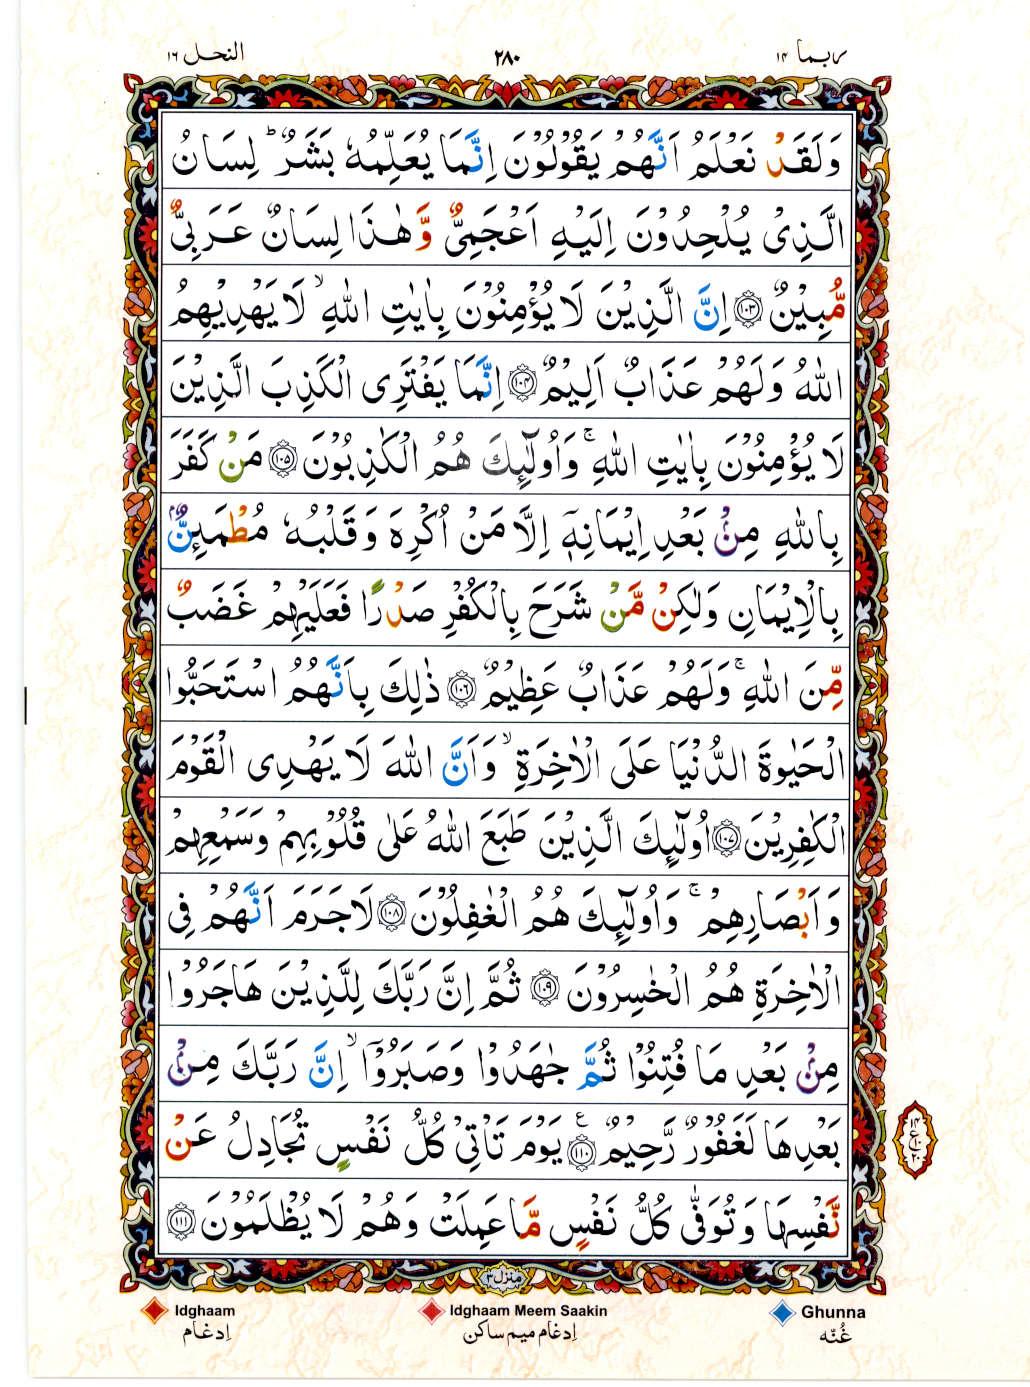 ربما ١٤
٢٨٠
النحل ١٦
وَلَقَدْ نَعْلَمُ اَنَّهُمْ يَقُوْلُوْنَ اِنَّمَا يُعَلِّمُهٗ بَشَرٌ ؕ لِسَانُ
الَّذِىْ يُلْحِدُوْنَ اِلَيْهِ اَعْجَمِىٌّ وَّهٰذَا لِسَانٌ عَرَبِىٌّ
مُّبِيْنٌ ﴿۱۰۳﴾ اِنَّ الَّذِيْنَ لَا يُؤْمِنُوْنَ بِاٰيٰتِ اللّٰهِ ۙ لَا يَهْدِيْهِمُ
اللّٰهُ وَلَهُمْ عَذَابٌ اَلِيْمٌ ﴿۱۰۴﴾ اِنَّمَا يَفْتَرِى الْكَذِبَ الَّذِيْنَ
لَا يُؤْمِنُوْنَ بِاٰيٰتِ اللّٰهِ ۚ وَاُولٰٓئِكَ هُمُ الْكٰذِبُوْنَ ﴿۱۰۵﴾ مَنْ كَفَرَ
بِاللّٰهِ مِنْۢ بَعْدِ اِيْمَانِهٖۤ اِلَّا مَنْ اُكْرِهَ وَقَلْبُهٗ مُطْمَئِنٌّۢ
بِالْاِيْمَانِ وَلٰكِنْ مَّنْ شَرَحَ بِالْكُفْرِ صَدْرًا فَعَلَيْهِمْ غَضَبٌ
مِّنَ اللّٰهِ ۚ وَلَهُمْ عَذَابٌ عَظِيْمٌ ﴿۱۰۶﴾ ذٰلِكَ بِاَنَّهُمُ اسْتَحَبُّوا
الْحَيٰوةَ الدُّنْيَا عَلَى الْاٰخِرَةِ ۙ وَاَنَّ اللّٰهَ لَا يَهْدِى الْقَوْمَ
الْكٰفِرِيْنَ ﴿۱۰۷﴾ اُولٰٓئِكَ الَّذِيْنَ طَبَعَ اللّٰهُ عَلٰى قُلُوْبِهِمْ وَسَمْعِهِمْ
وَاَبْصَارِهِمْ ۚ وَاُولٰٓئِكَ هُمُ الْغٰفِلُوْنَ ﴿۱۰۸﴾ لَا جَرَمَ اَنَّهُمْ فِى
الْاٰخِرَةِ هُمُ الْخٰسِرُوْنَ ﴿۱۰۹﴾ ثُمَّ اِنَّ رَبَّكَ لِلَّذِيْنَ هَاجَرُوْا
مِنْۢ بَعْدِ مَا فُتِنُوْا ثُمَّ جٰهَدُوْا وَصَبَرُوْۤا ۙ اِنَّ رَبَّكَ مِنْۢ
بَعْدِهَا لَغَفُوْرٌ رَّحِيْمٌ ﴿۱۱۰﴾ ع يَوْمَ تَاْتِىْ كُلُّ نَفْسٍ تُجَادِلُ عَنْ
نَّفْسِهَا وَتُوَفّٰى كُلُّ نَفْسٍ مَّا عَمِلَتْ وَهُمْ لَا يُظْلَمُوْنَ ﴿۱۱۱﴾
منزل ٣
Ghunna
غُنّه
Idghaam Meem Saakin
اِدغام میم ساکن
Idghaam
اِدغام